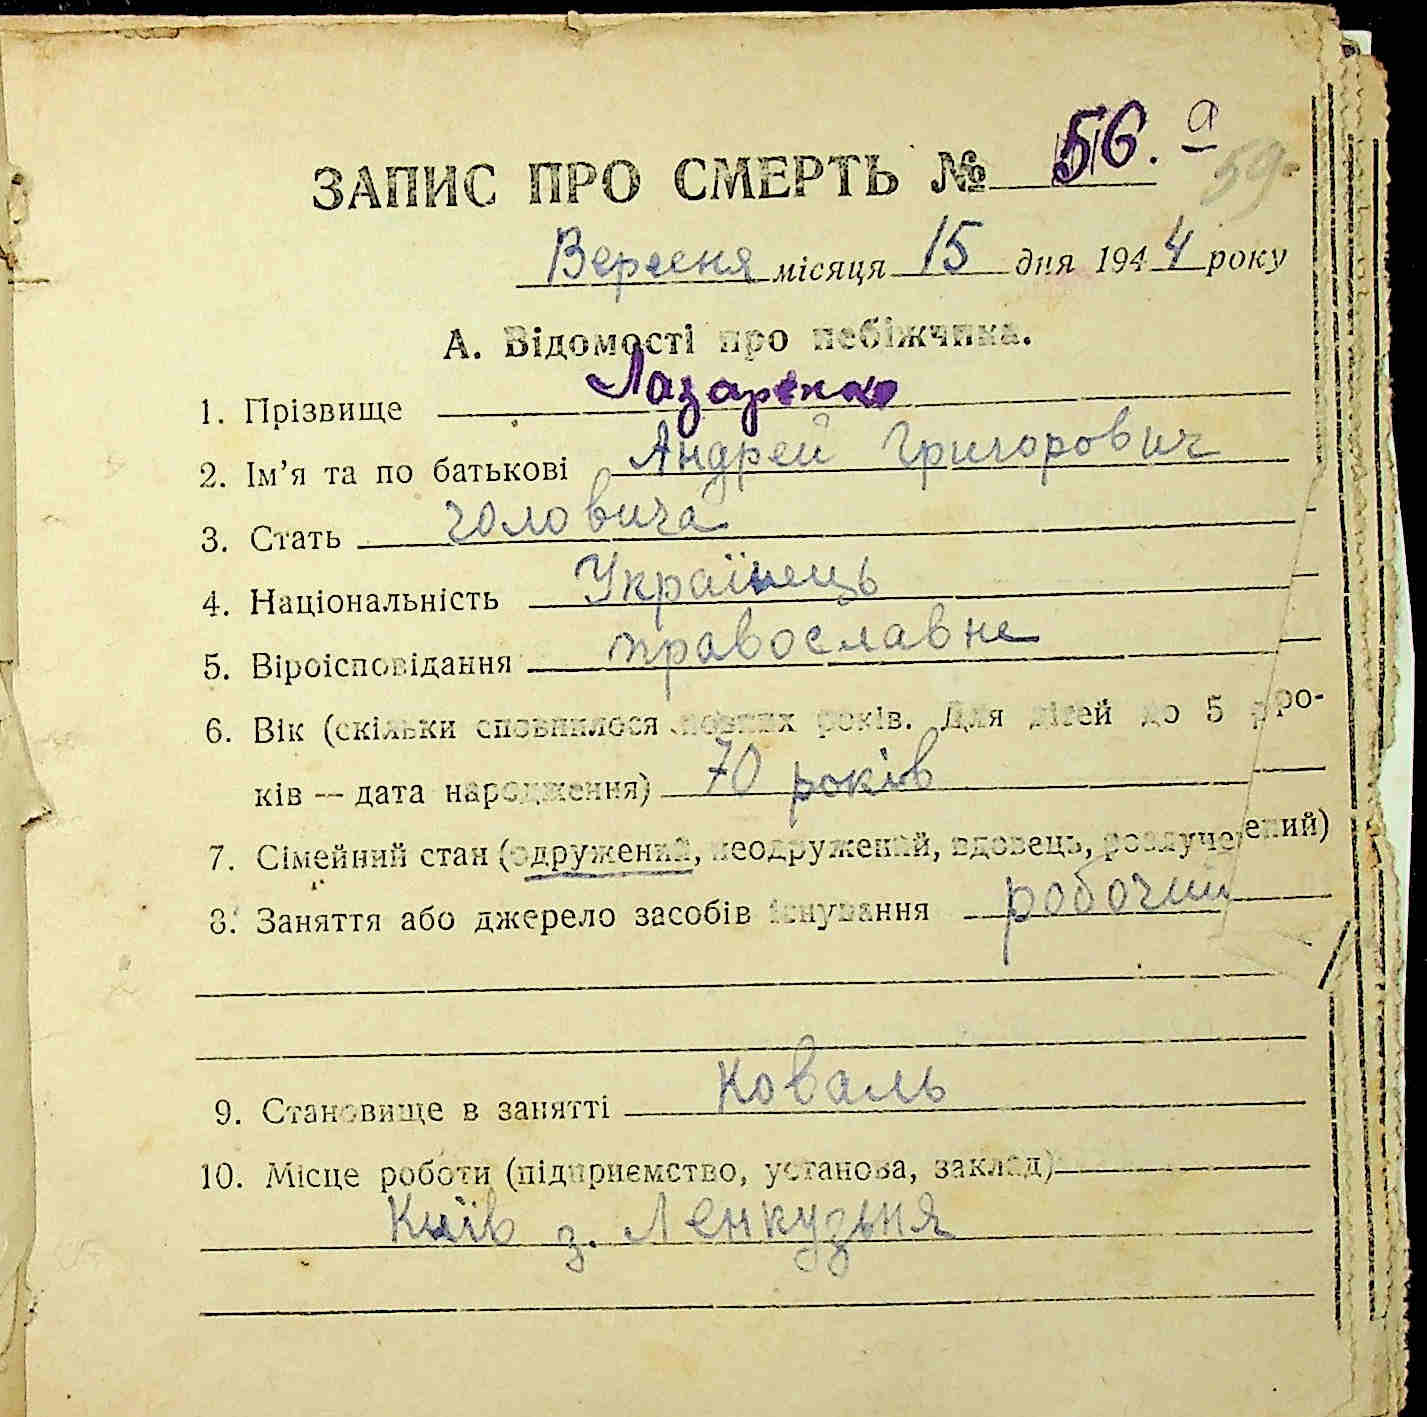 ЗАПИС ПРО СМЕРТЬ № 56. а
59.
Вересня місяця 15 дня 1944 року
А. Відомості про небіжчика.
1. Прізвище Лазаренко
2. Ім’я та по батькові Андрей Григорович
3. Стать чоловича
4. Національність Українець
5. Віроісповідання православне
6. Вік (скільки сповнилося повних років. Для дітей до 5 ро-
ків — дата народження) 70 років
7. Сімейний стан (одружений, неодружений, вдовець, розлучений)
8. Заняття або джерело засобів існування робочий
9. Становище в занятті Коваль
10. Місце роботи (підприємство, установа, заклад)
Київ з. Ленкузьня